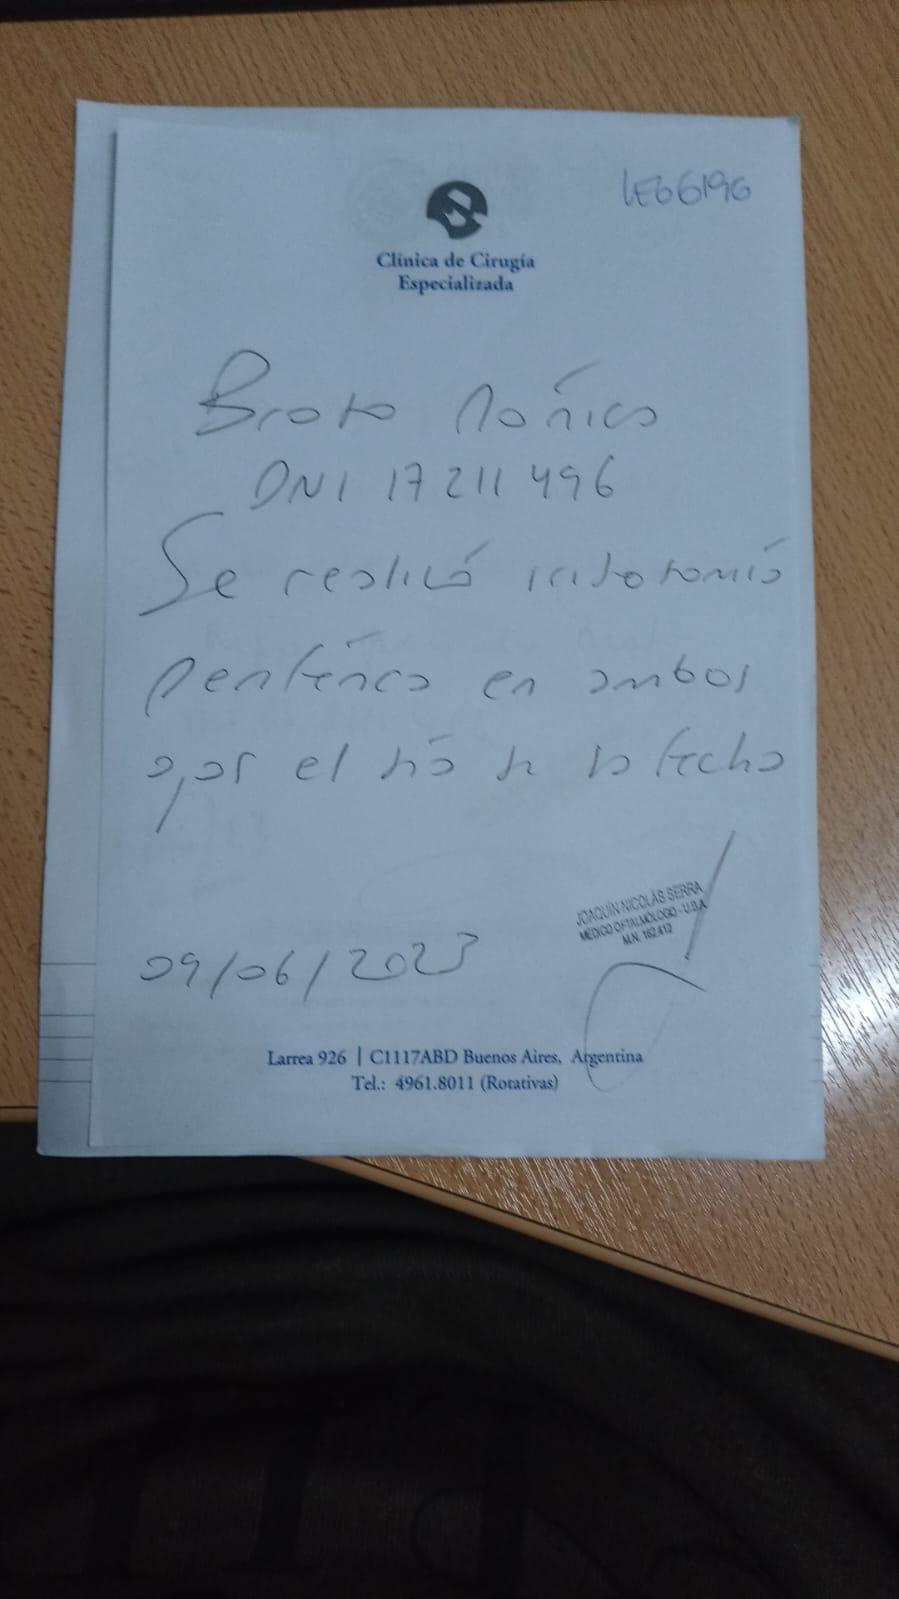 LE66196
Clínica de Cirugía
Especializada
Broto Mónica
DNI 17 211 496
Se realizó iridotomía
periférica en ambos
ojos el día de la fecha
JOAQUÍN NICOLÁS SERRA
MEDICO OFTALMÓLOGO - U.B.A.
M.N. 162.412
09/06/2023
Larrea 926 | C1117ABD Buenos Aires, Argentina
Tel.: 4961.8011 (Rotativas)